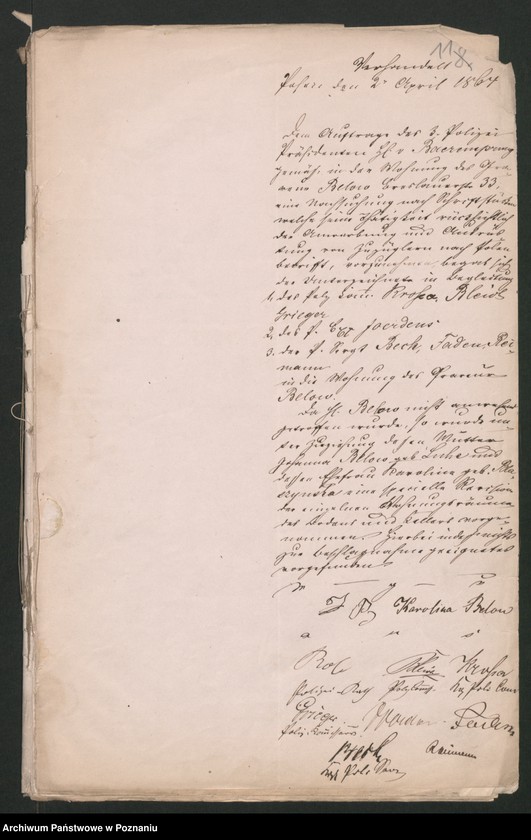 118.
Verhandelt
Posen den 2 April 1864
Dem Auftrage des H. Polizei
Präsidenten H. v Baerensprung
gemäß, in der Wohnung des Gra-
veurs Below Breslauerstr 33,
eine Nachsuchung nach Schriftstücken
welche seine Thätigkeit rücksichtlich
der Anwerbung und Ausrüs-
tung von Zuzüglern nach Polen
betrifft, vorzunehmen, begab sich
der Unterzeichnete in Begleitung
1. des Polz Com. Krosa, Bleich
Grieger
2. des P. Joerdens
3. der P. Sergt Beck, Faden, Rei-
mann
in die Wohnung des Graveur
Below.
Da H. Below nicht anwesend
getroffen wurde, so wurde un-
ter Zuziehung dessen Mutter
Johanna Below geb. und
dessen Ehefrau Karoline geb.
eine specielle Revision
der einzelnen Wohnungsräume
des Bodens und Kellers vorge-
nommen. Hierbei indeß nichts
zur Beschlagnahme geeignetes
vorgefunden.
v g u
Karolina Below
a u s
Krosa
Polizei-Rath Polz Comm. Kg Poliz Com
Polz Commiss. Faden
Reimann